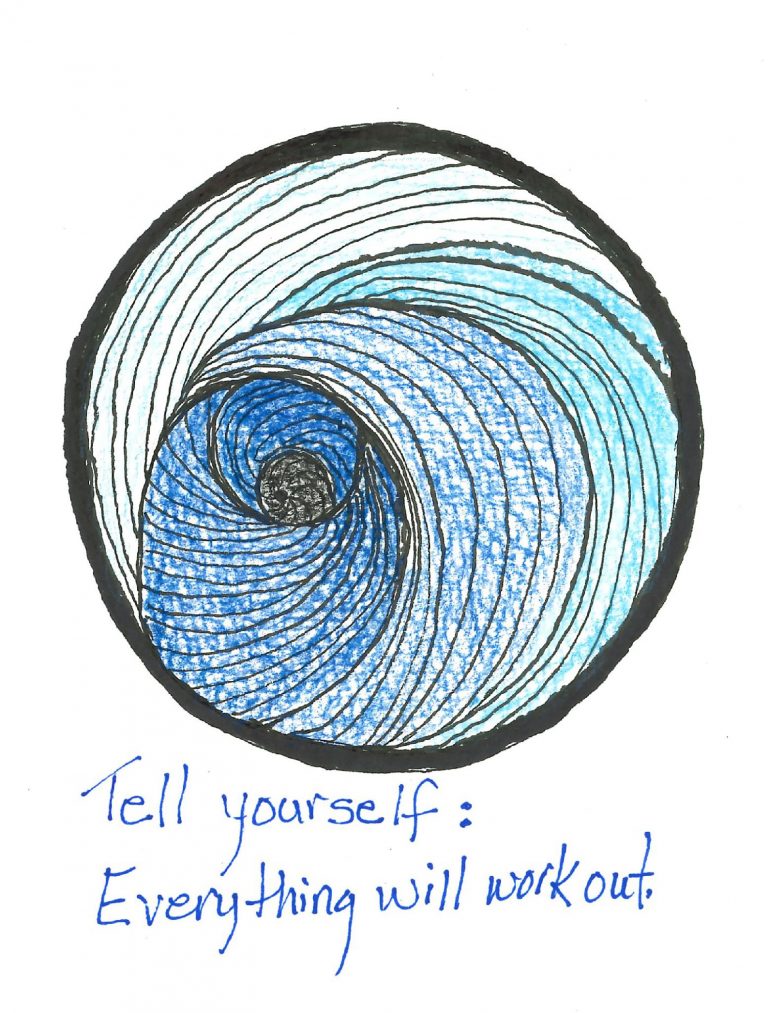 Tell yourself:
Everything will work out.